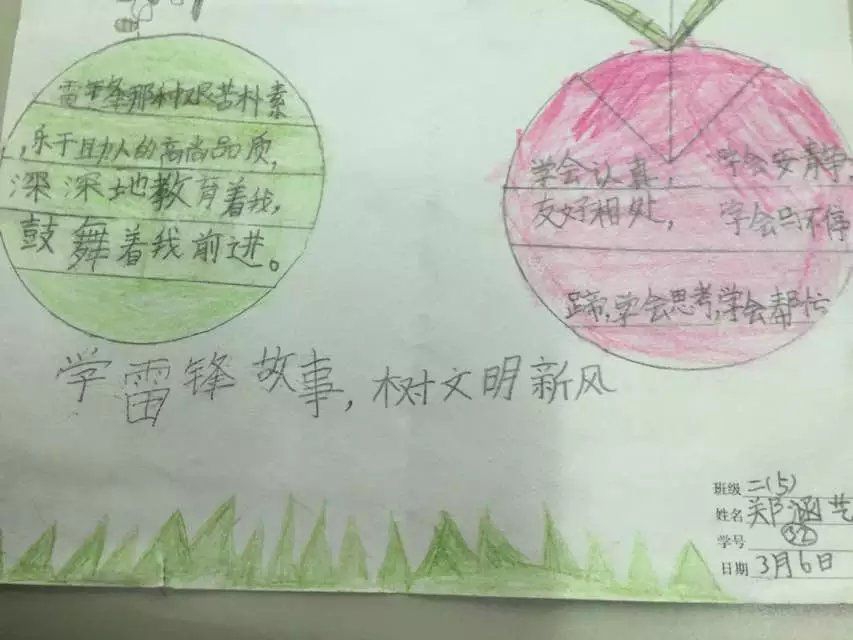 雷锋那种艰苦朴素
,乐于助人的高尚品质,
深深地教育着我,
鼓舞着我前进。
学会认真, 学会安静,
友好相处, 学会马不停
蹄,学会思考,学会帮忙
学雷锋故事,树文明新风
班级 二(5)
姓名 郑涵艺
学号 32
日期 3月6日